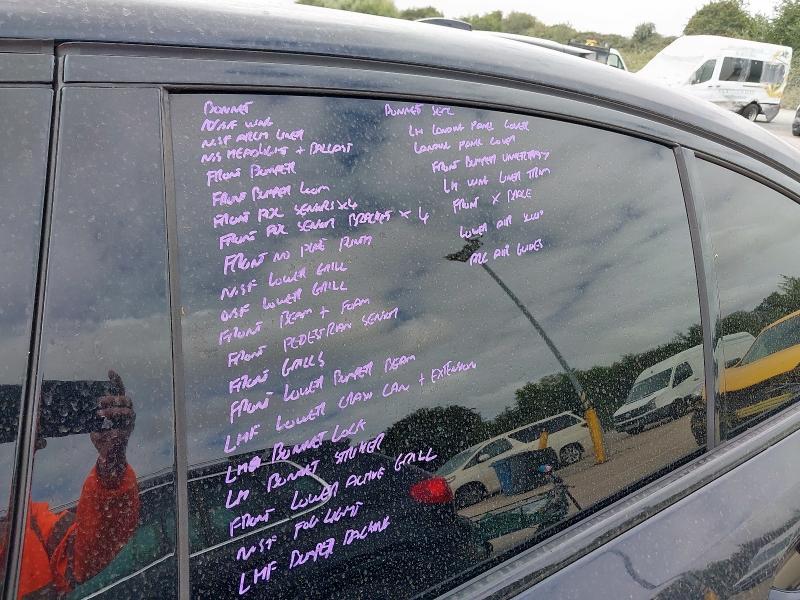 BONNET
N/SF WING
NSF ARCH LINER
NS HEADLIGHT + BALLAST
FRONT BUMPER
FRONT BUMPER LOOM
FRONT PDC SENSORS x4
FRONT PDC SENSOR BRACKET x 4
FRONT NO PLATE PLINTH
N/SF LOWER GRILL
OSF LOWER GRILL
FRONT BEAM + FOAM
FRONT PEDESTRIAN SENSOR
FRONT GRILLS
FRONT LOWER BUMPER BEAM
LHF LOWER CRASH CAN + EXTENSION
BONNET LOCK
LH BONNET STRIKER
FRONT LOWER ACTIVE GRILL
N/SF FOG LIGHT
LHF BUMPER BACKING
BONNET SEAL
LH LANDING PANEL COVER
LANDING PANEL COVER
FRONT BUMPER UNDERTRAY
LH WING LINER TRIM
FRONT X BRACE
LOWER AIR
AIR GUIDES